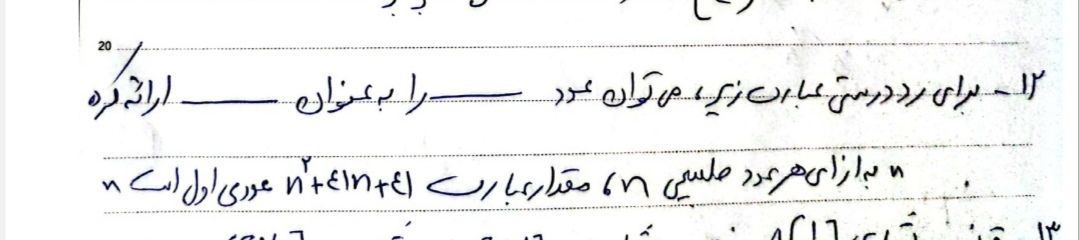 20
۱۲- برای رد درستی عبارت زیر، می‌توان عدد ــــــ را به عنوان ــــــ ارائه کرد
" به ازای هر عدد طبیعی n، مقدار عبارت n²+۴۱n+۴۱ عددی اول است "